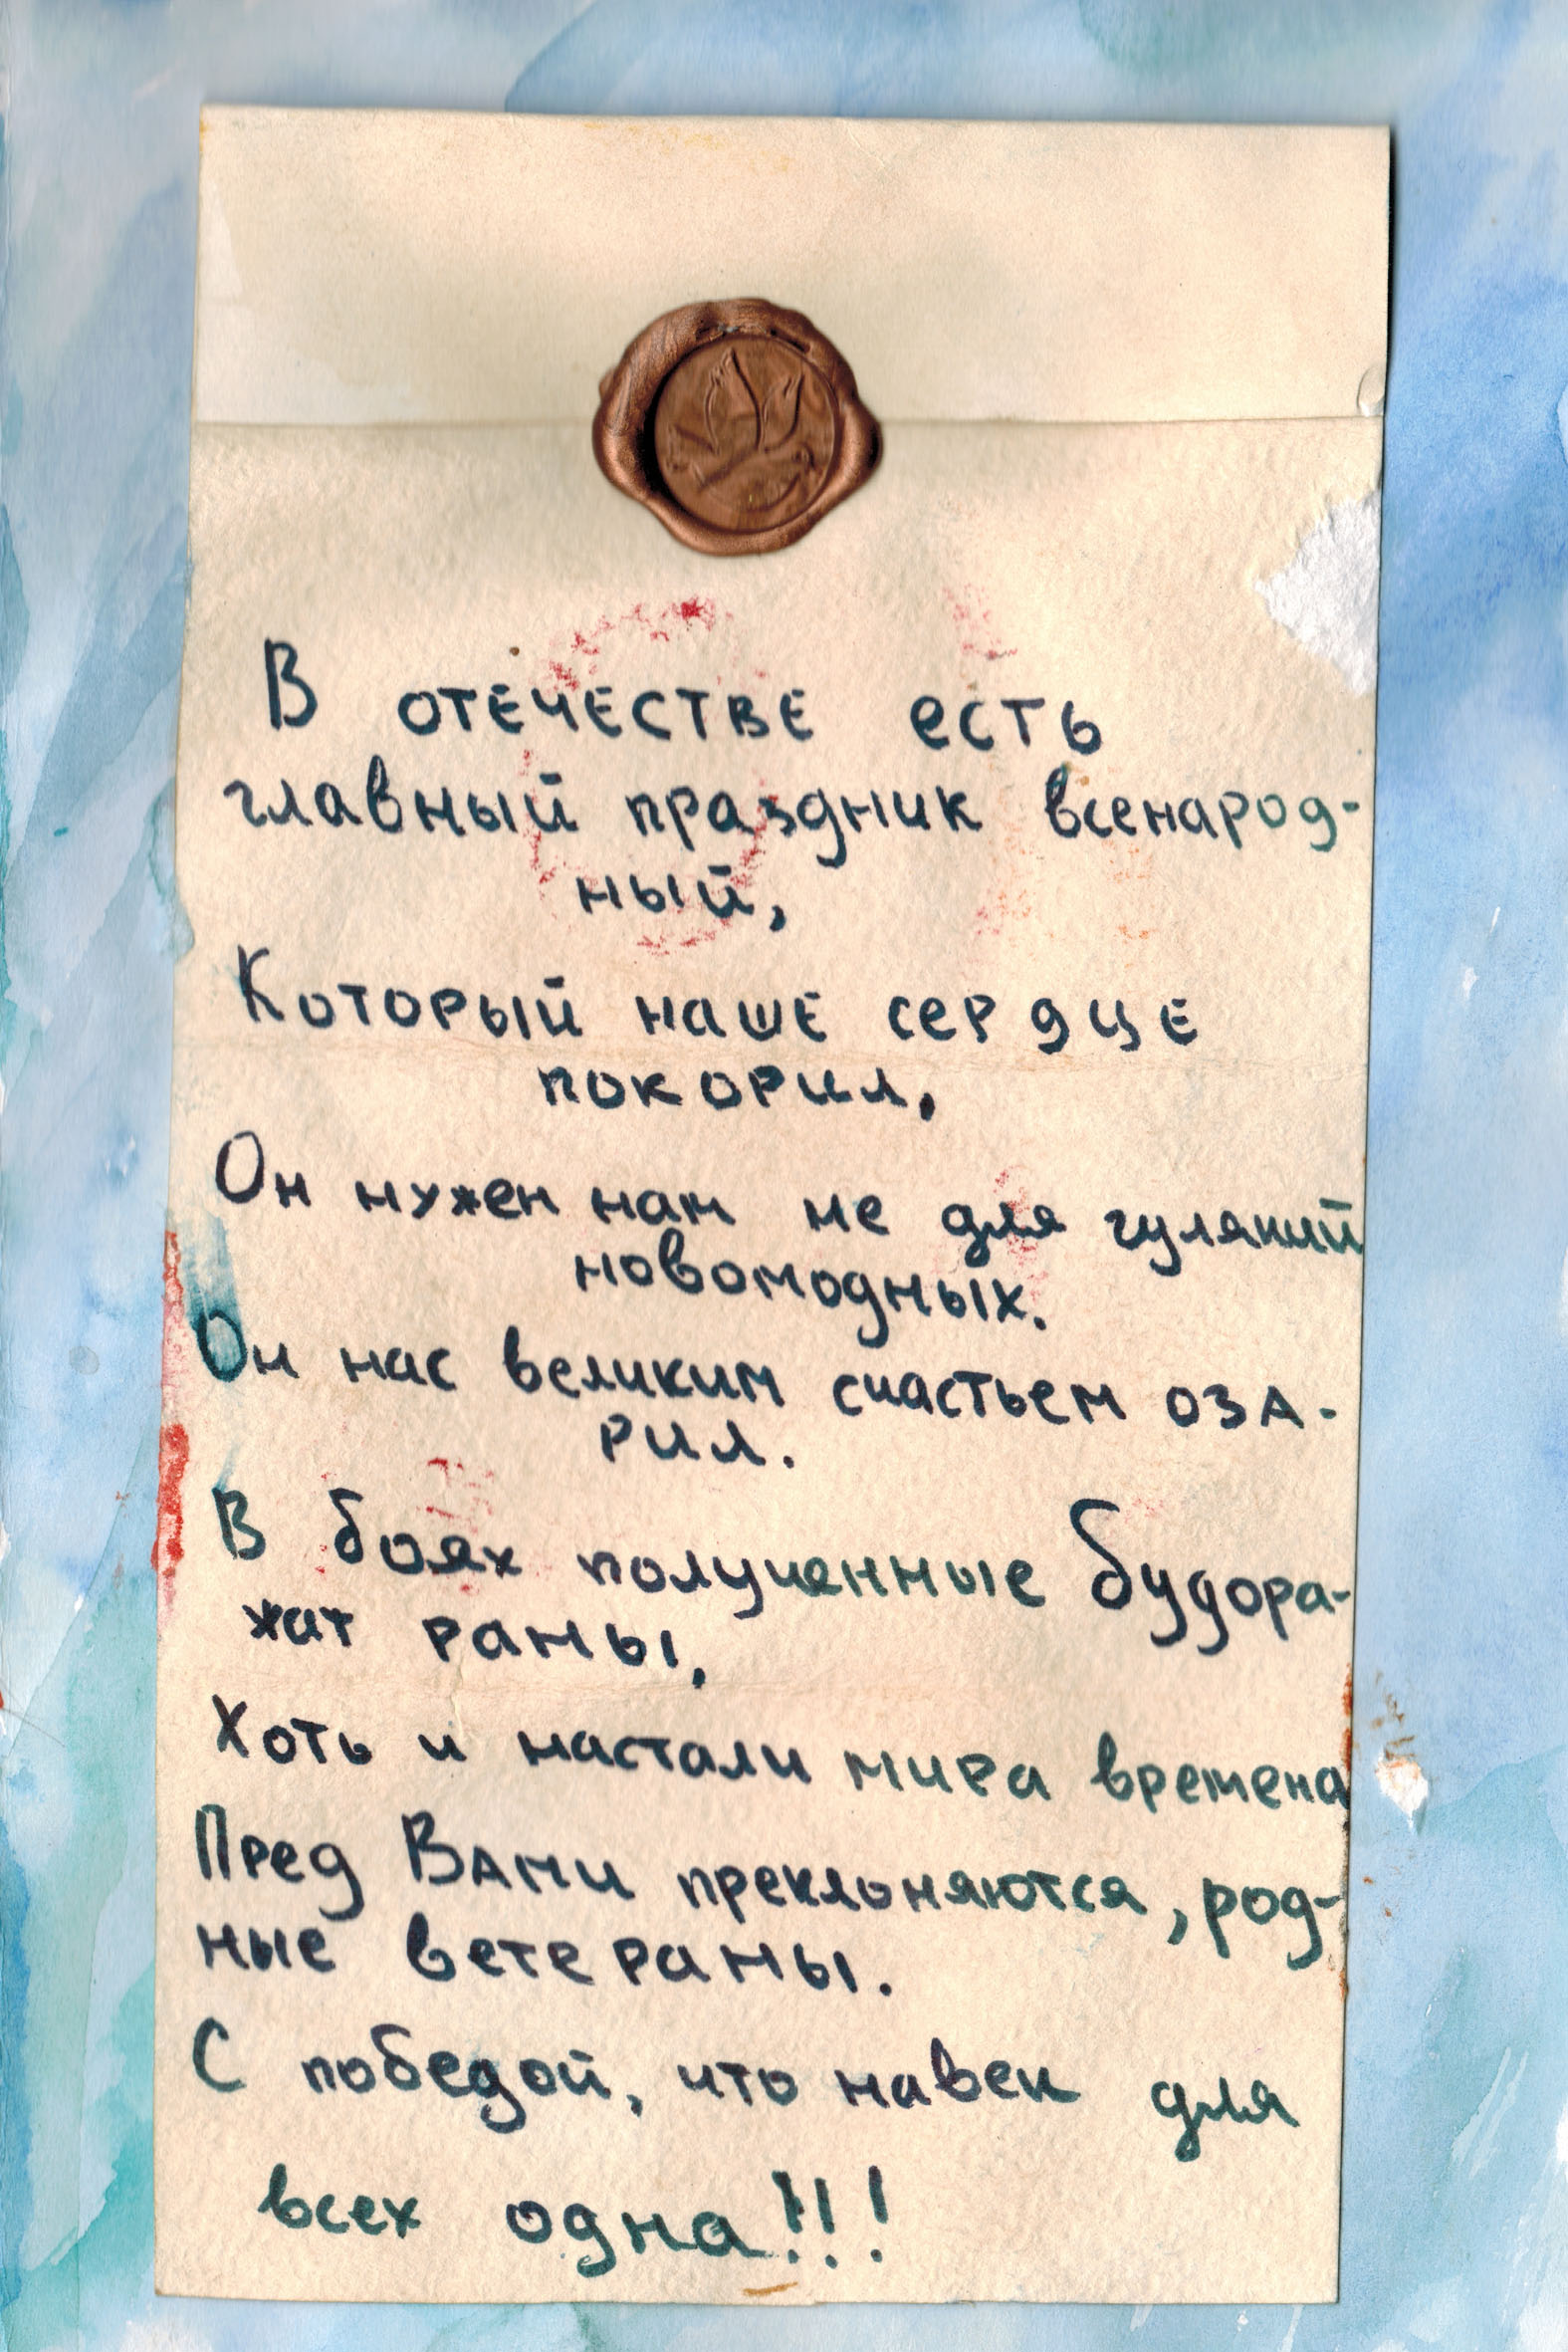 В отечестве есть
главный праздник всенарод-
ный,
Который наше сердце
покорил,
Он нужен нам не для гуляний
новомодных.
Он нас великим счастьем оза-
рил.
В боях полученные будора-
жат раны,
Хоть и настали мира времена
Пред Вами преклоняются, род-
ные ветераны.
С победой, что навек для
всех одна!!!